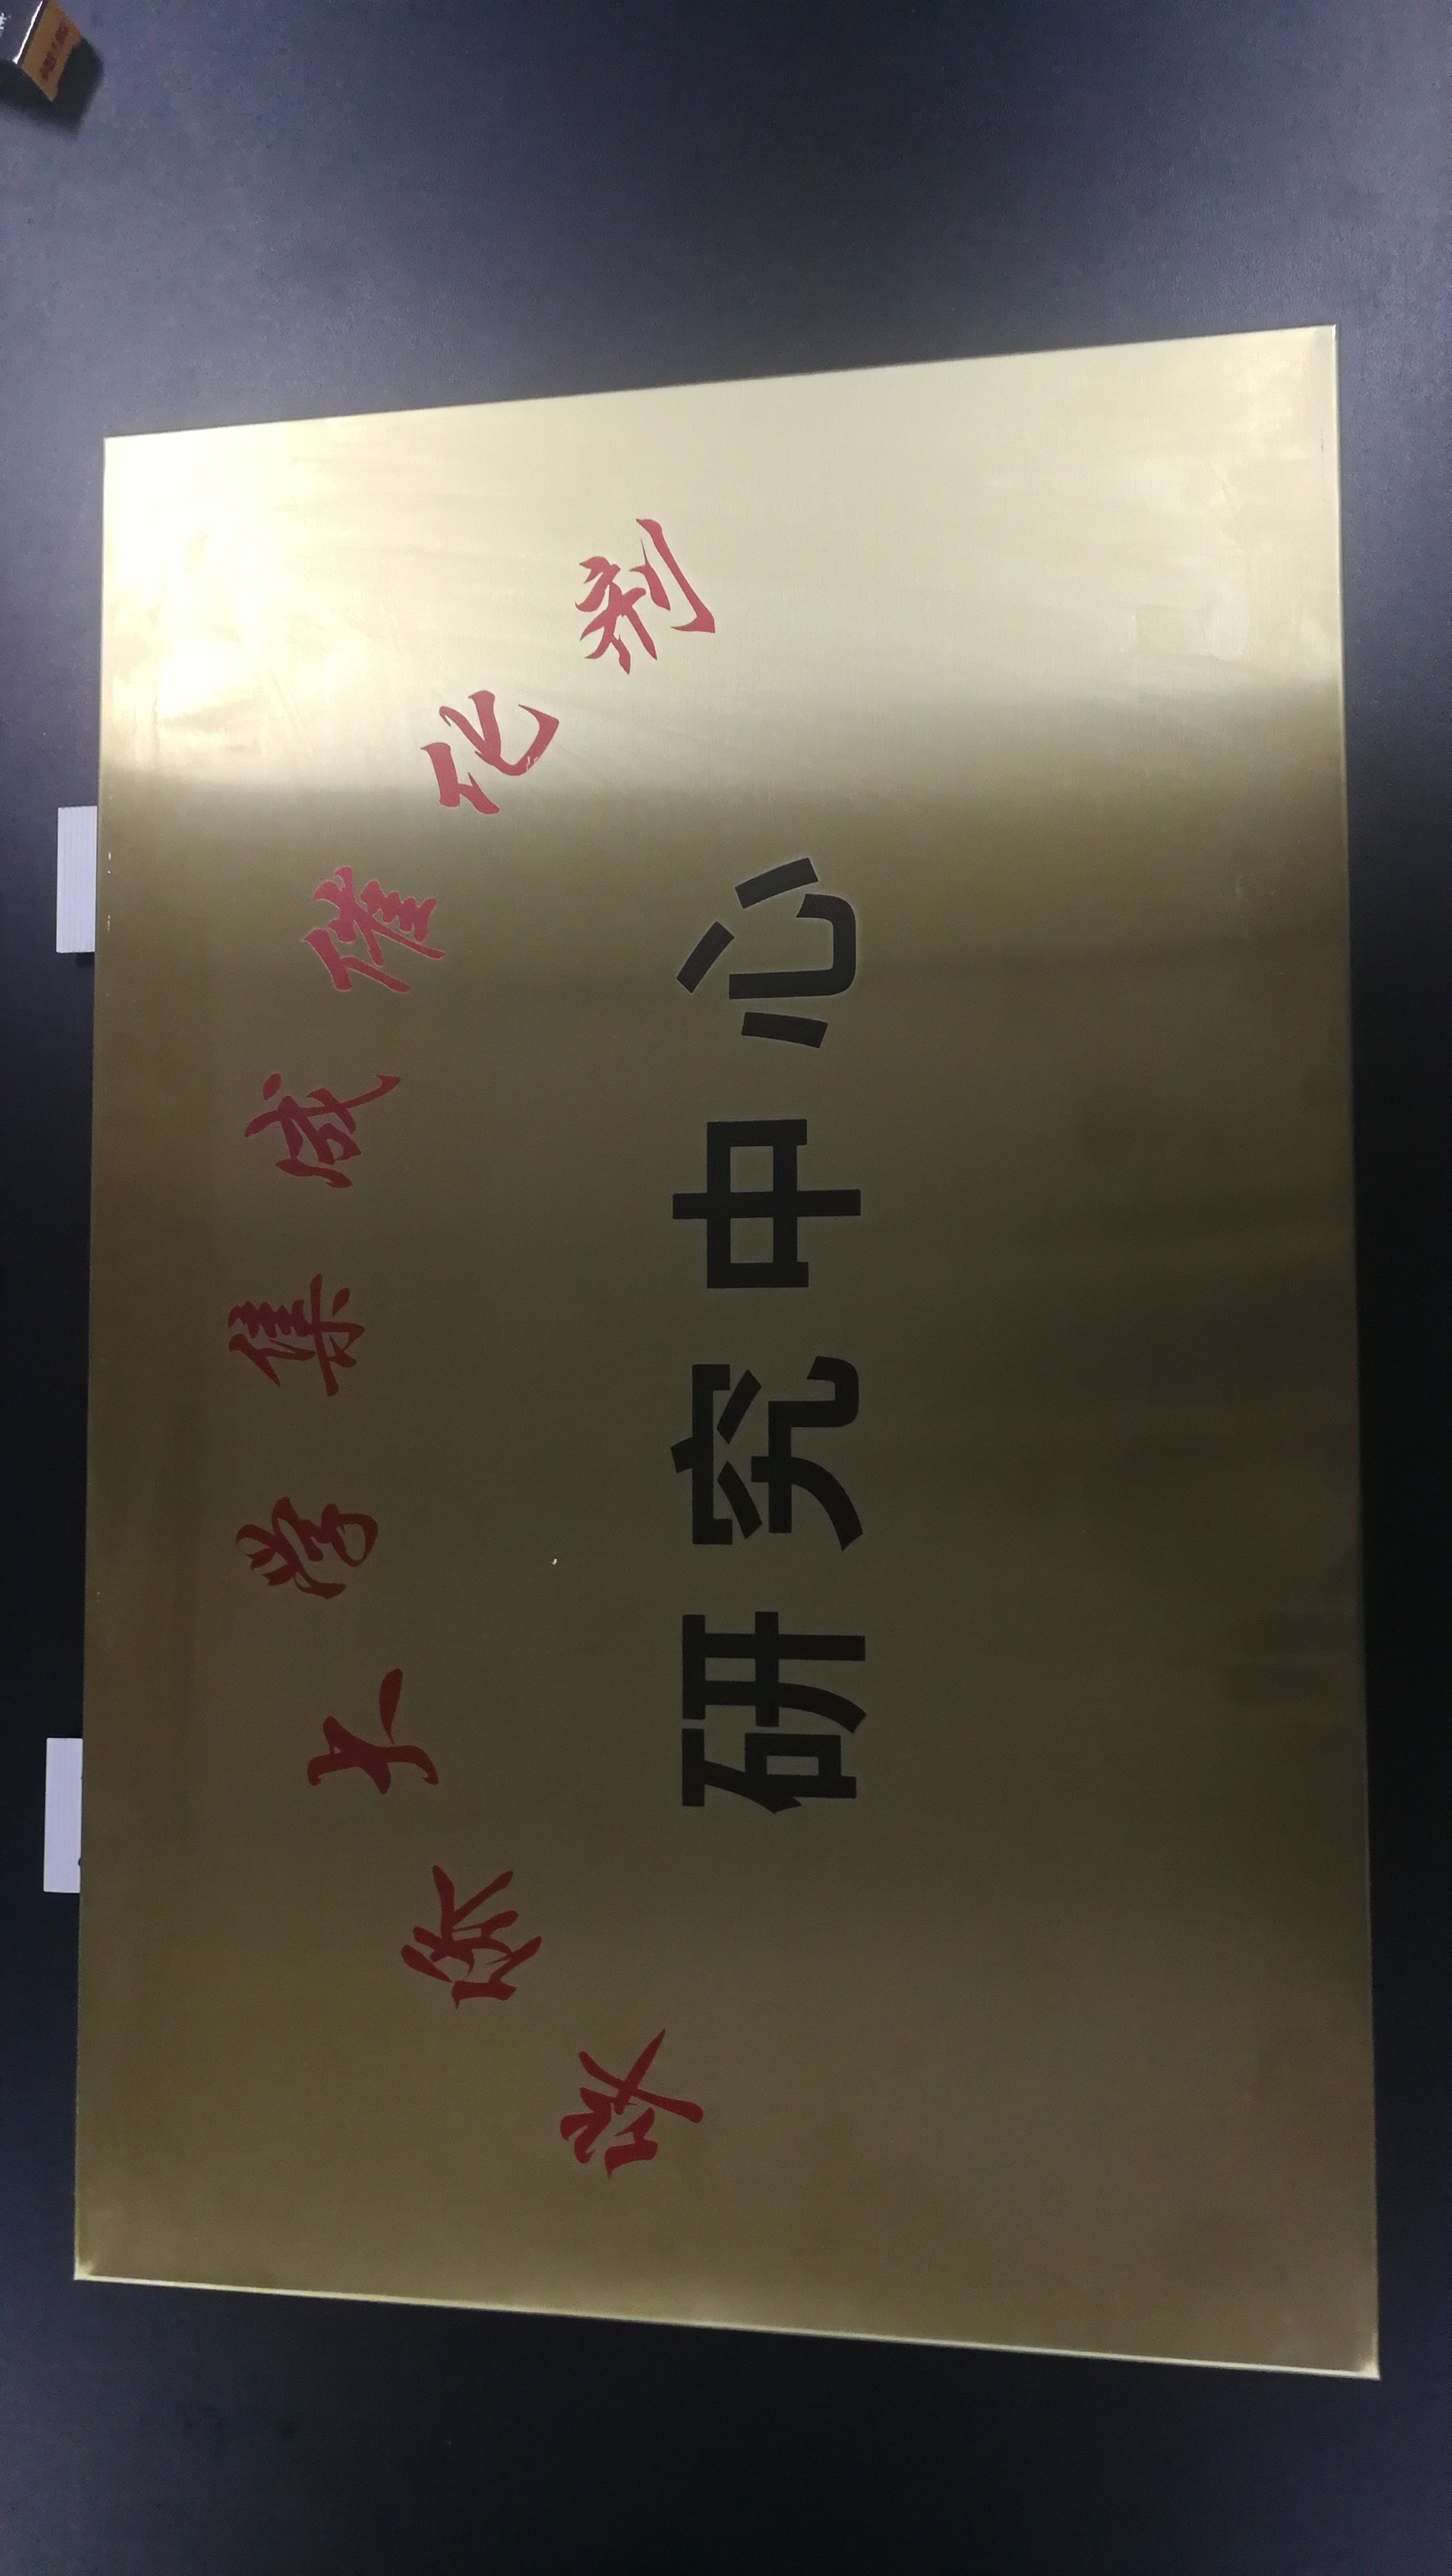 大学集成催化剂
研究中心